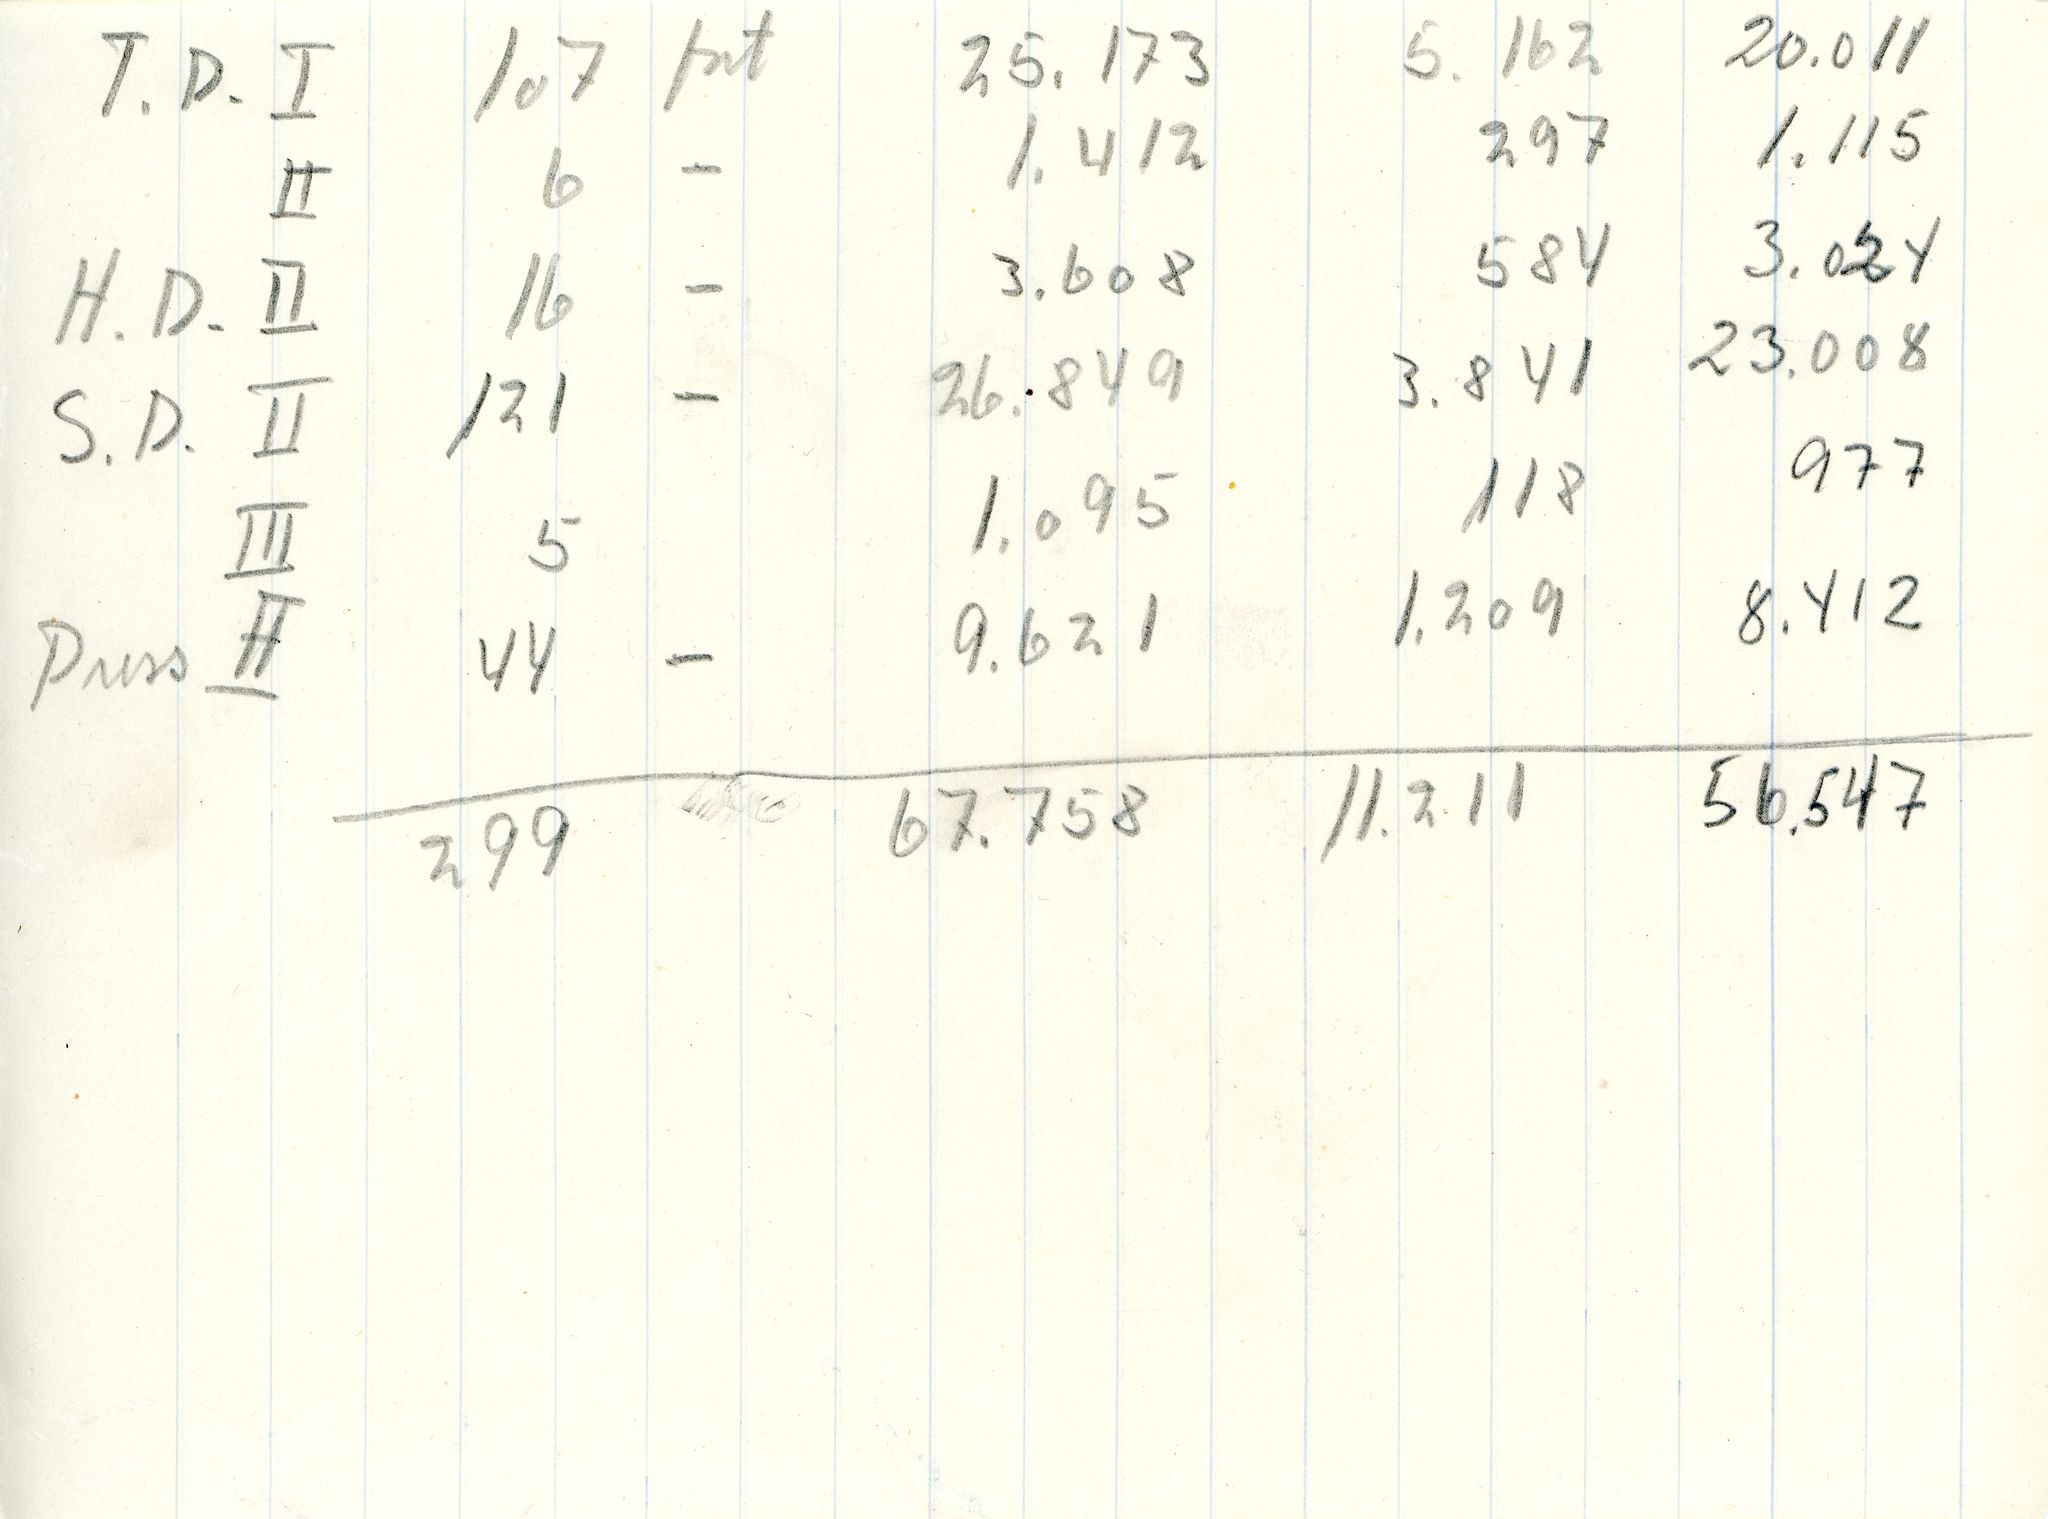 T.D. I 107 fat 25.173 5.162 20.011
II 6 - 1.412 297 1.115
H.D. II 16 - 3.608 584 3.024
S.D. II 121 - 26.849 3.841 23.008
III 5 1.095 118 977
Press II 44 - 9.621 1.209 8.412
299 67.758 11.211 56.547